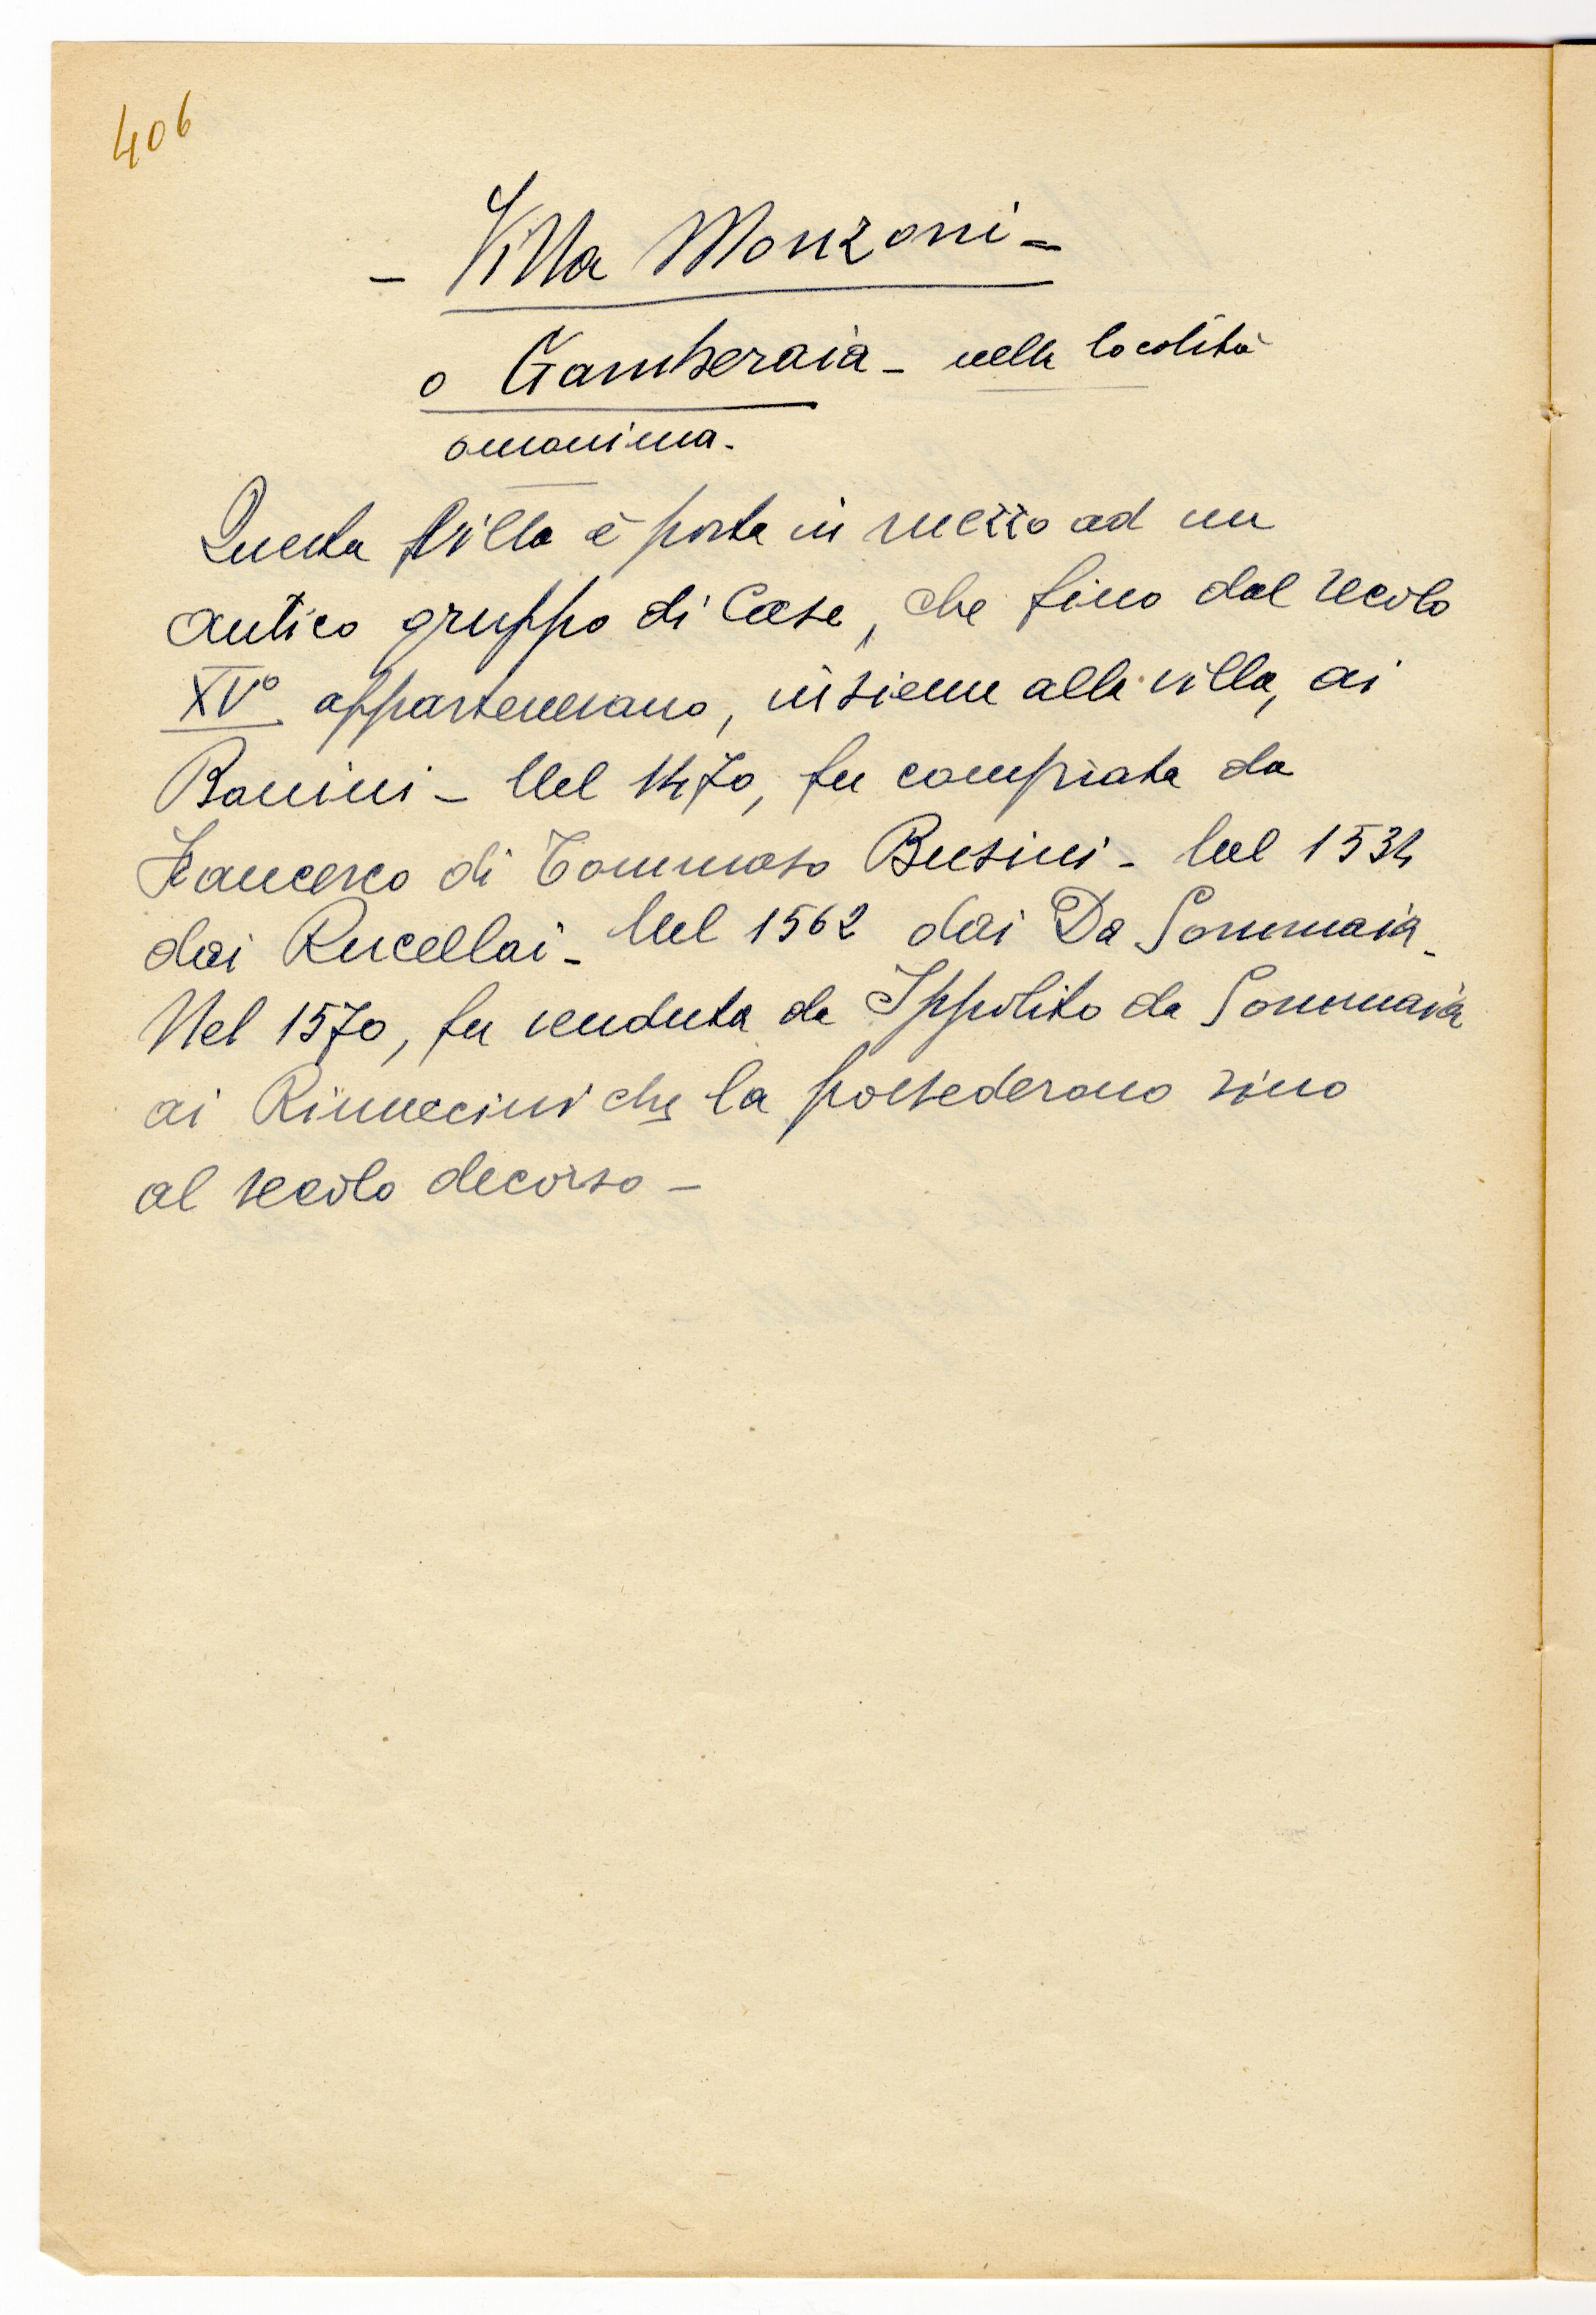 406
- Villa Monzoni -
o Gamberaia - nella località
omonima.
Questa Villa è posta in mezzo ad un
antico gruppo di Case, che fino dal secolo
XV° appartenevano, insieme alla villa, ai
Bonini - Nel 1470, fu comprata da
Francesco di Tommaso Busini - Nel 1534
dai Rucellai - Nel 1562 dai Da Sommaia -
Nel 1570, fu venduta da Ippolito da Sommaia
ai Rinuccini che la possederono sino
al secolo decorso -